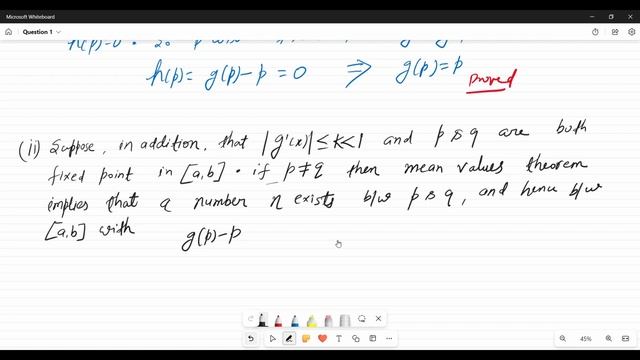 Microsoft Whiteboard
Question 1
h(p)= g(p)-p = 0 ⇒ g(p)=p
proved
(ii) Suppose, in addition, that |g'(x)| ≤ k<1 and p & q are both
fixed point in [a,b] . if p≠q then mean values theorem
implies that a number n exists b/w p & q, and henu b/w
[a,b] with g(p)-p
45%